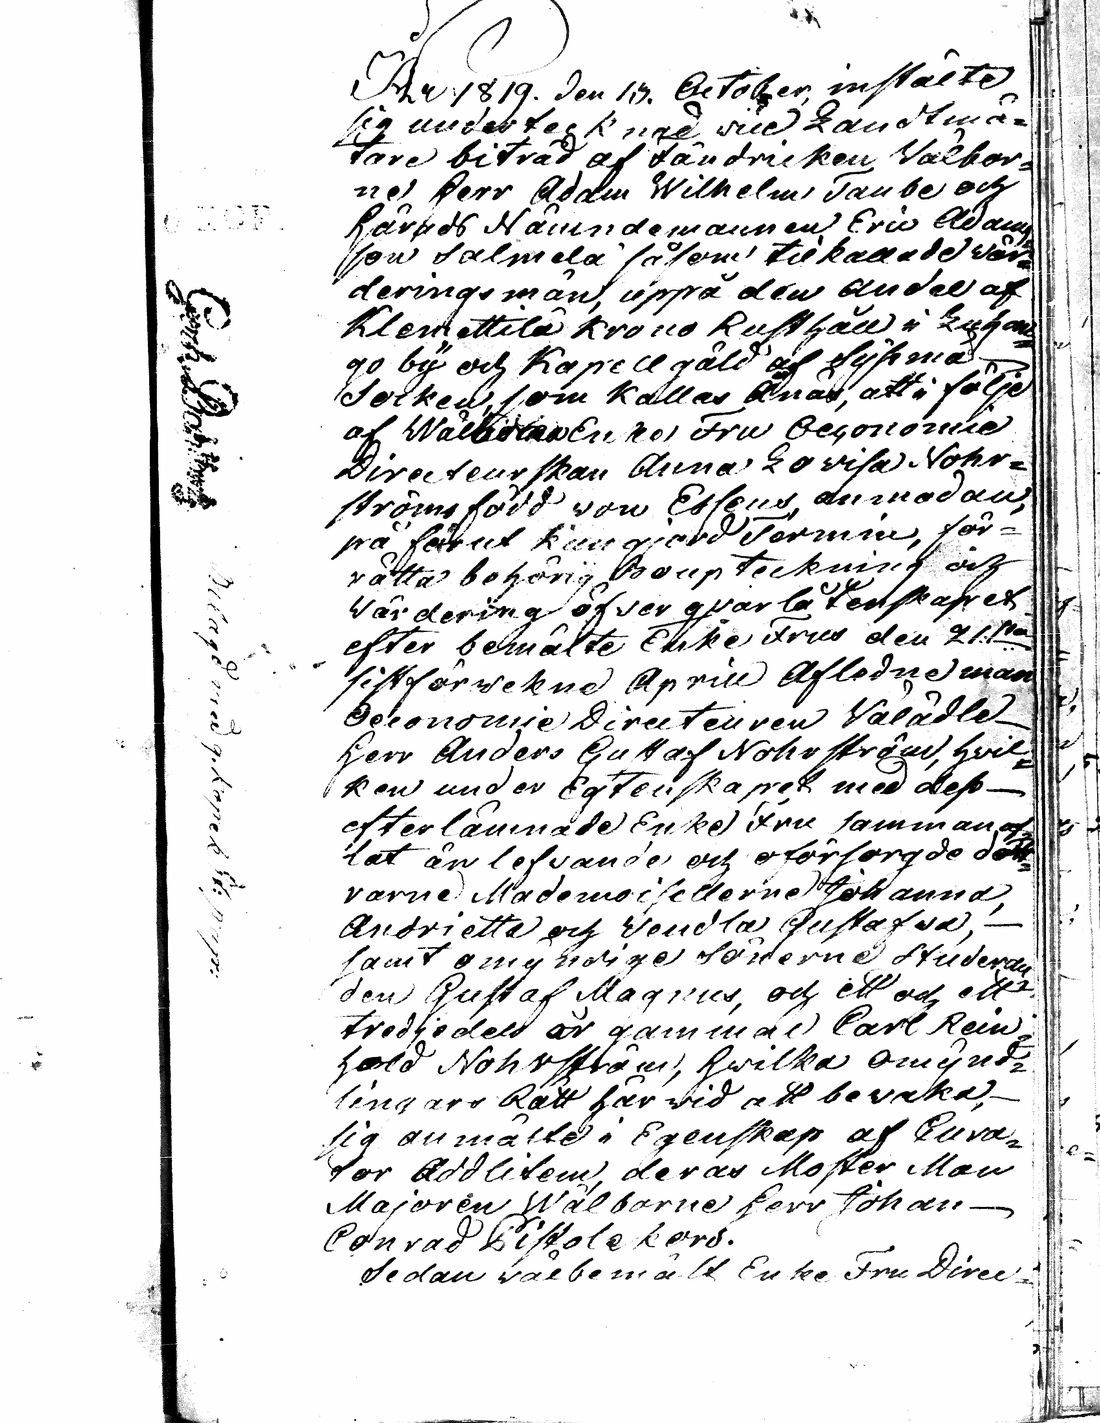 År 1819. den 13. October, instälte
sig undertecknad vice Landtmä=
tare biträd af Fändricken Välbor=
ne Herr Adam Wilhelm Taube och
Härads Nämndemannen Eric Adams
son Salmela såsom tilkallade vär=
deringsmän, uppå den Andel af
Klemettilä Krono Rusthåll i Luhan=
go by och Kapell gäld af Sysmä
Socken, som kallas Anäs, att i följe
af Wälborna Enke Fru Oeconomie
Directeurskan Anna Lovisa Nohr=
ströms född von Essens, anmodan,
på förut kungjord Termin, för=
rätta behörig Bouptekning och
värdering öfver qvarlåtenskapet
efter bemälte Enke Frus den 21sta
sistförvekne April Aflednе man
Oeconomie Directeuren Väl ädle
Herr Anders Gustaf Nohrström, hvil=
ken under Egtenskapet med dess
efterlämnade Enke Fru samman af=
lat än lefvande och oförsorgde dött=
rarne Mademoisellerne Johanna,
Andrietta och Vendla Gustafva,
samt omyndige Sönerne Studeran=
den Gustaf Magnus, och ett och ett
tredjedels år gammal Carl Rein=
hold Nohrström, hvilka Omynd=
lingars Rätt här vid att bevaka,
sig anmälte i Egenskap af Cura=
tor Addlitem, deras Moster Man
Majoren Wälborne Herr Johan
Conrad Pistolekors.
Sedan välbemält Enke Fru Direc=